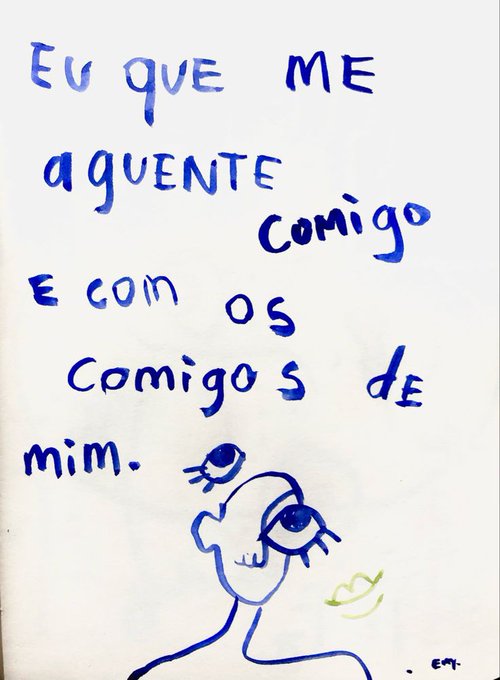 EU QUE ME
AGUENTE
COMIGO
E COM OS
COMIGOS DE
MIM.